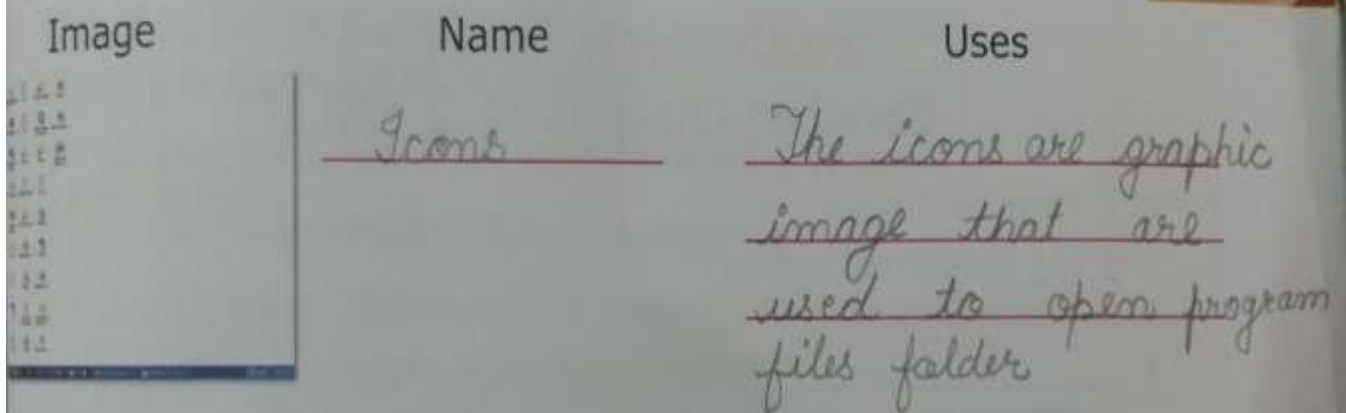 Image Name Uses
Icons The icons are graphic
image that are
used to open program
files folder